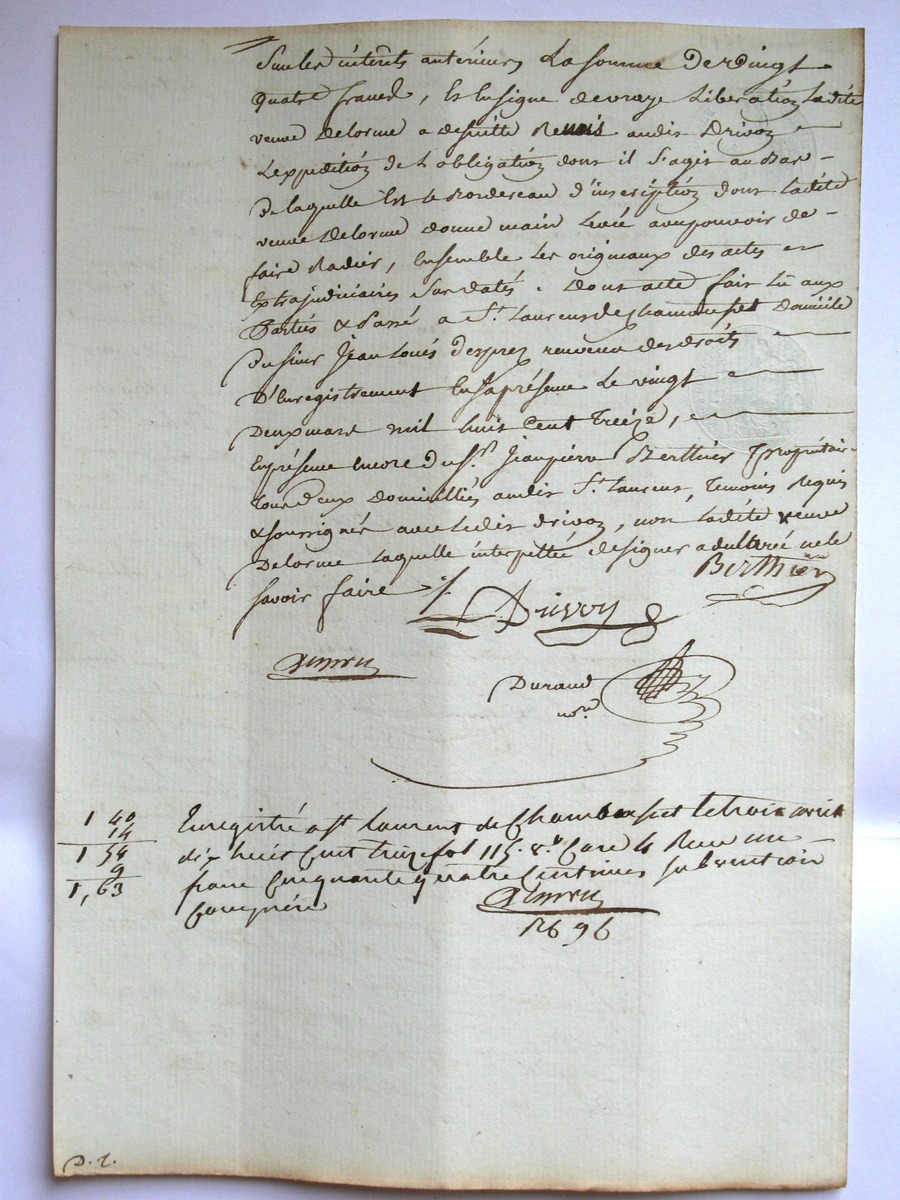 Sur les intérets antérieurs La Somme De Vingt
quatre francs, Et En signe de vraye Liberation Ladite
veuve Delorme a de suitte Remis audit Drivoz
L'expedition de L'obligation dont il s'agit au Bas
De laquelle Est le Bordereau d'inscription dont ladite
veuve Delorme donne main Levée avec pouvoir de
faire Radier, Ensemble Les originaux des actes
Extrajudiciaires Sus datés. Dont acte fait Lû aux
Parties & Passé a St. Laurent de chamousset Domicile
Du sieur Jean Louis Desprez receveur des droits
D'Enregistrement En sa présence Le vingt
Deux mars mil huit Cent Treize,
En présence encore du Sr. Jean pierre Berthier propriétair.
tous deux Domiciliés audit St. Laurent, Temoins Requis
& soussignés avec Ledit drivoz, non ladite veuve
Delorme laquelle interpellée de signer a dultéré ne le
savoir faire
Berthier
Drivoz
Durand
nore.
1 40
14
1 54
9
1,63
Enregistré a st laurent de Chamousset le trois avril
dix huit Cent treize fol 115. vo. Case 4 Recu un
franc Cinquante quatre Centimes subvention
Comprise
R6 96
D. L.